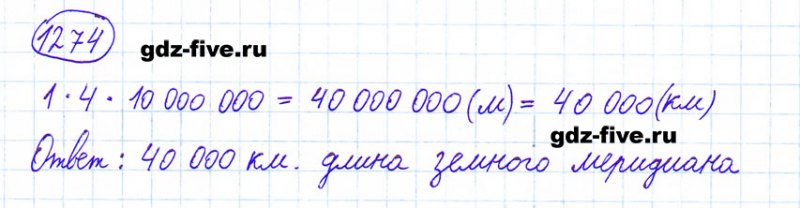 1274
gdz-five.ru
1 · 4 · 10 000 000 = 40 000 000 (м) = 40 000 (км)
gdz-five.ru
Ответ : 40 000 км. длина земного меридиана